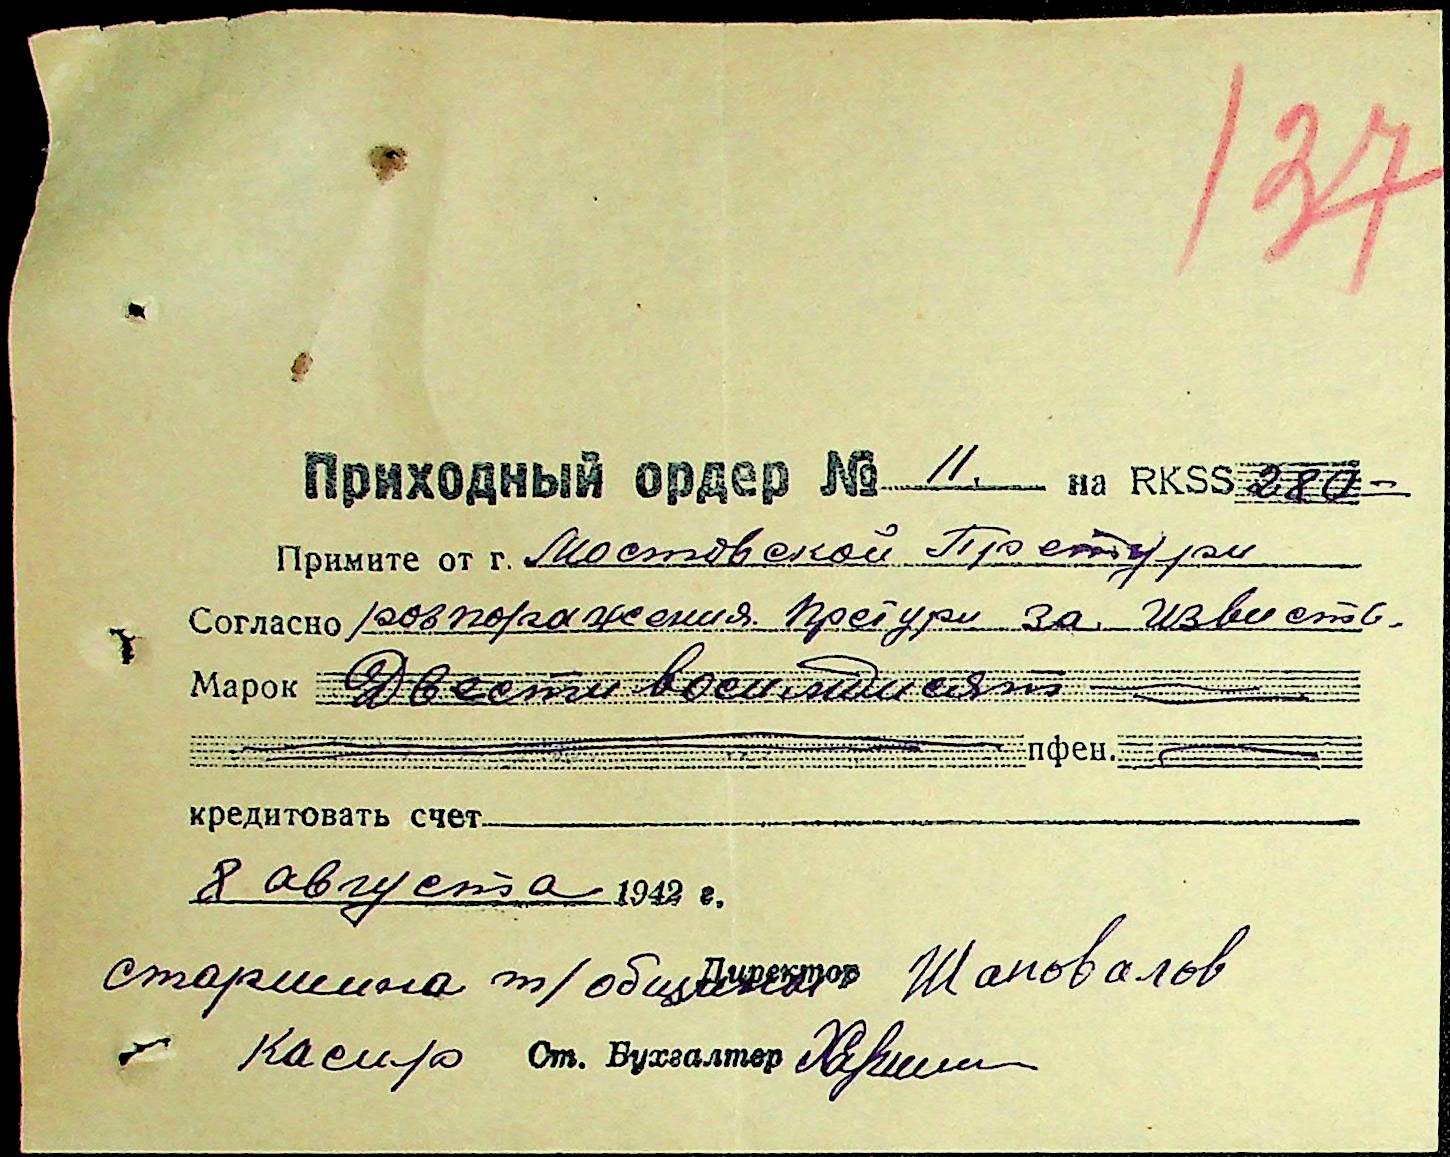 137
Приходный ордер № 11. на RKSS 280-
Примите от г. Мостовской Претури
Согласно розпоражения Претури за. известь.
Марок Двести восимдисят
пфен.
кредитовать счет
8 августа 1942 г.
старшина т/общины Директор Шаповалов
Касир Ст. Бухгалтер